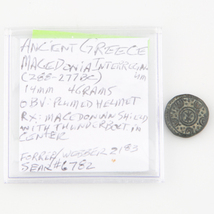 ANCIENT GREECE
MACEDONIA INTERREGNUM
(288-277BC)
14MM 4GRAMS
OBV: PLUMED HELMET
RX: MACEDONIAN SHIELD
WITH THUNDERBOLT IN
CENTER
2183
SEAR #6782